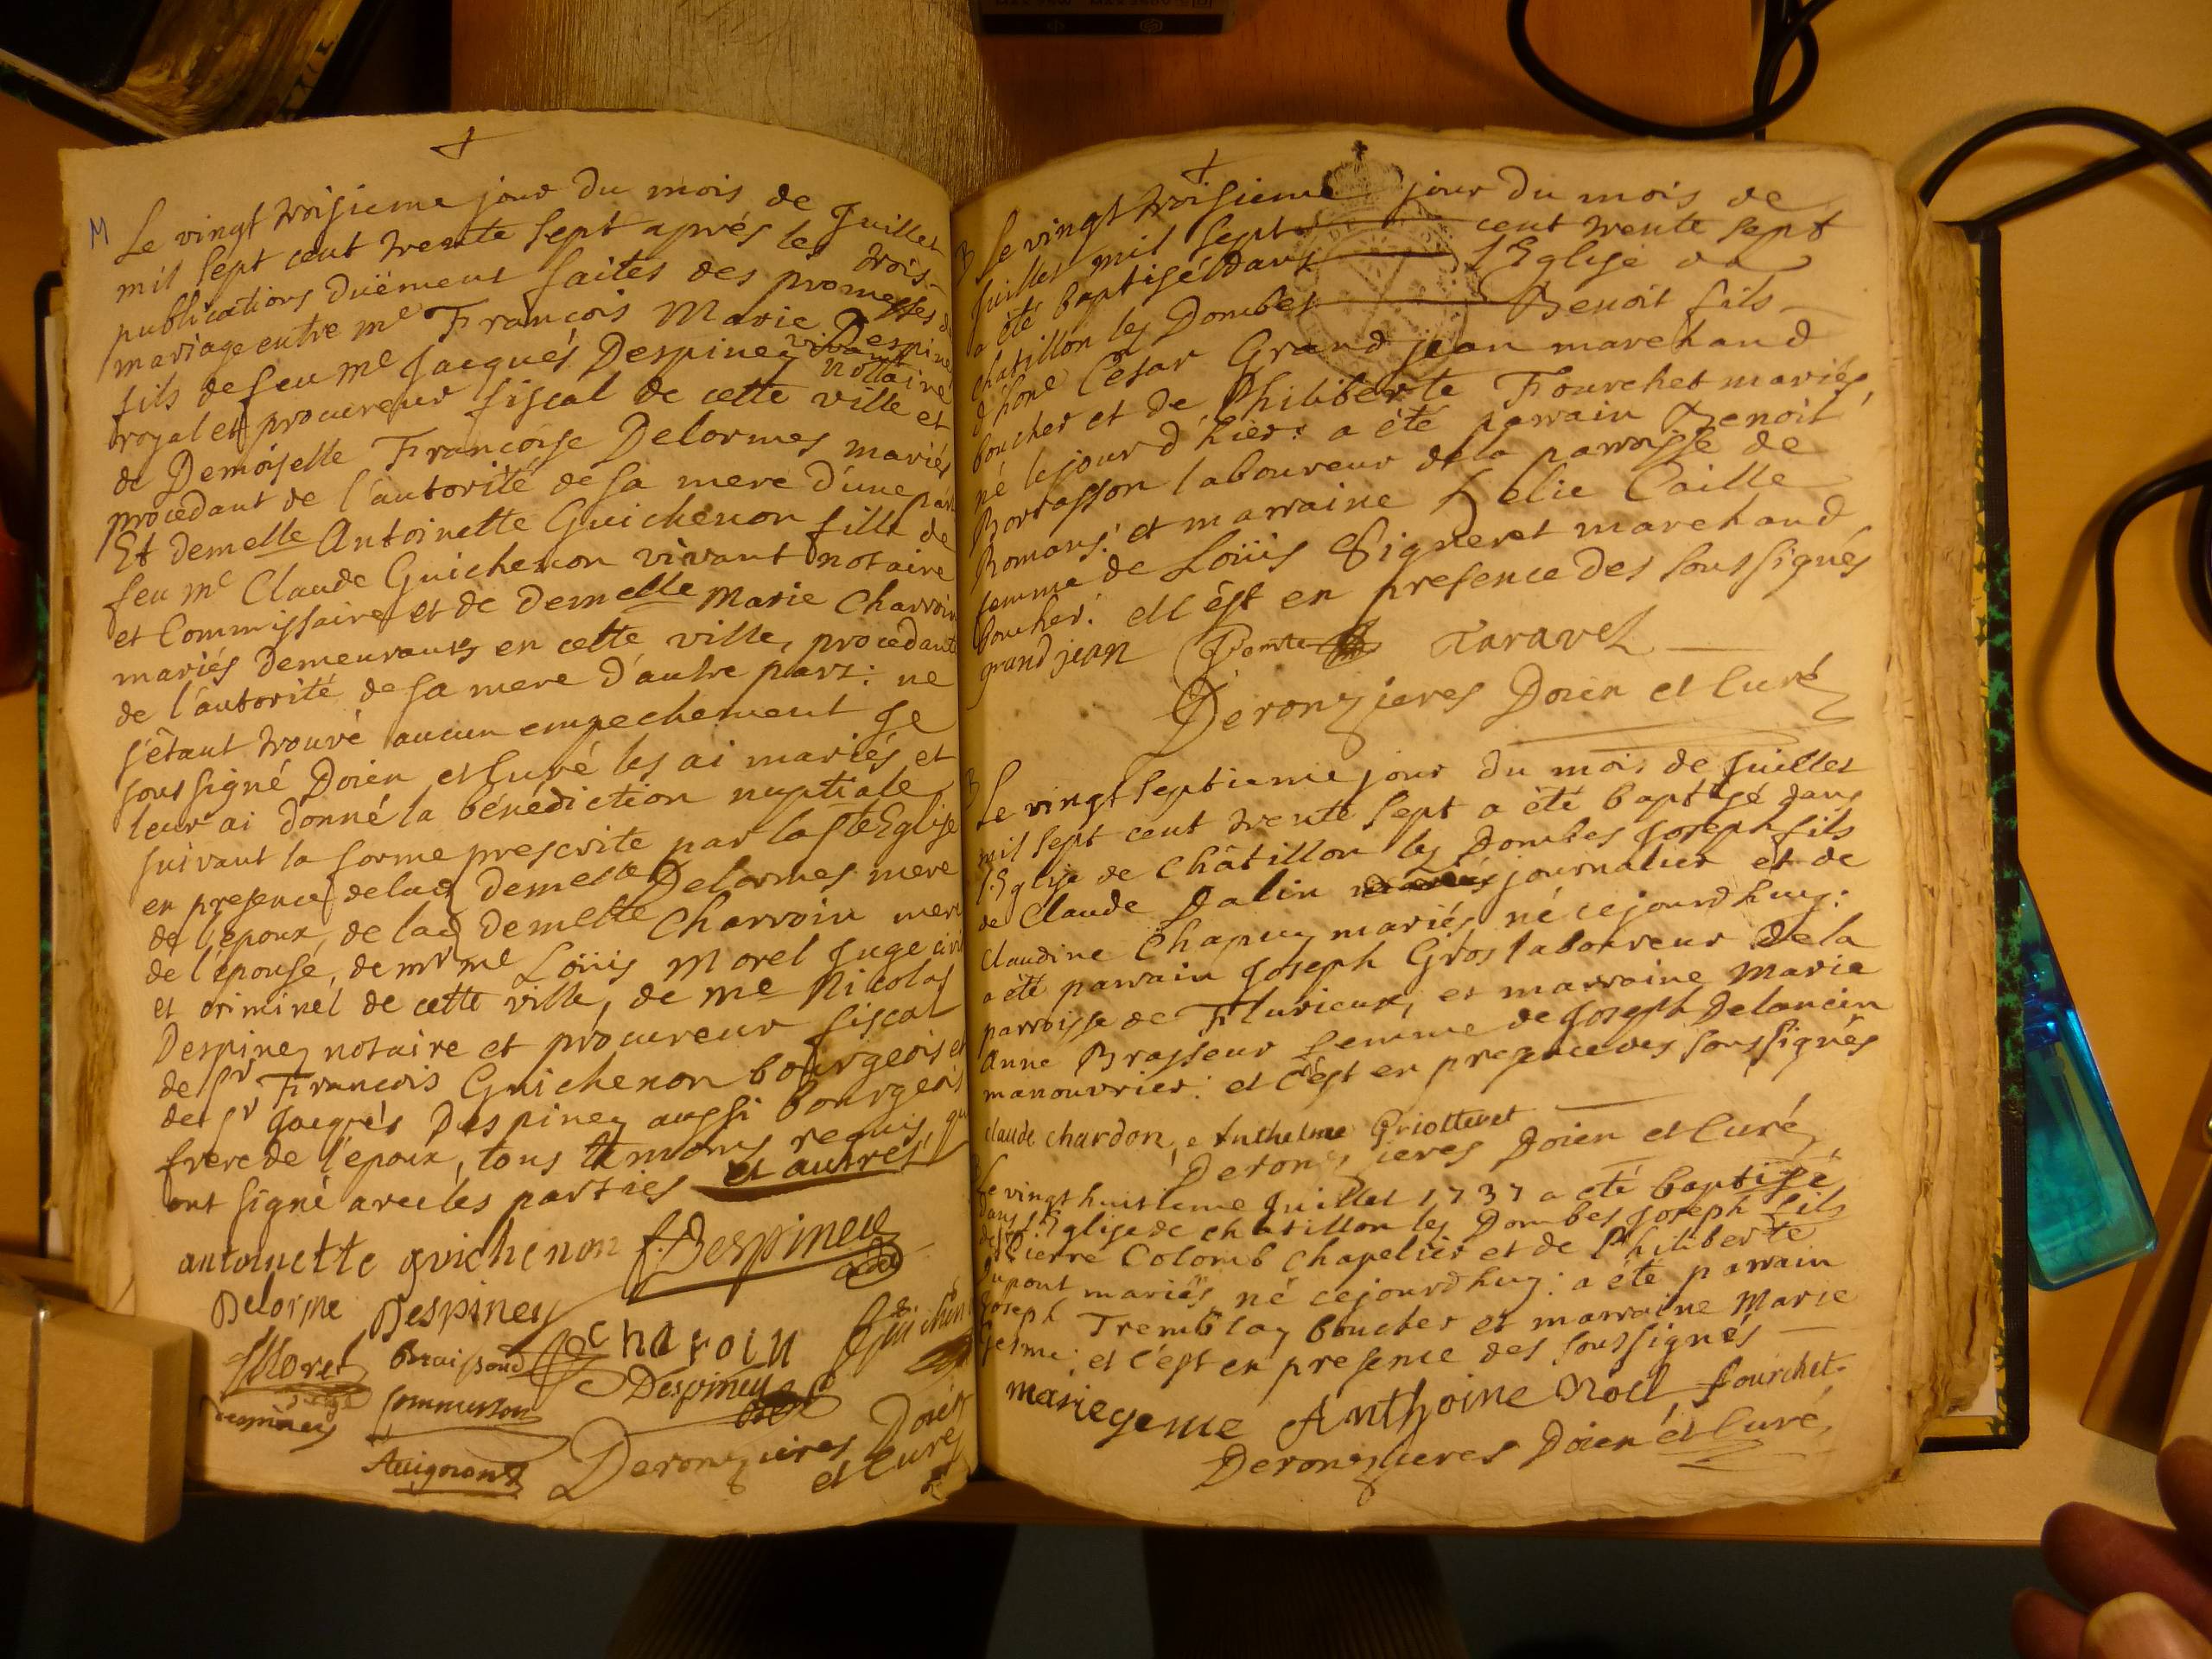 M
Le vingt troisieme jour du mois de Juillet
mil sept cent trente sept aprés les trois
publications duëment faites des promesses de
mariage entre me François Marie Despiney
fils de feu me Jacques Despiney vivant nottaire
royal et procureur fiscal de cette ville et
de Demoiselle Françoise Delormes mariés
procedant de l'autorité de sa mere d'une part
Et demelle Antoinette Guichenon fille de
feu me Claude Guichenon vivant notaire
et Commissaire et de demelle Marie Charvoin
mariés demeurants en cette ville, procedante
de l'autorité de sa mere d'autre part: ne
s'étant trouvé aucun empechement Je
soussigné Doïen et Curé les ai mariés et
leur ai donné la bénédiction nuptiale
suivant la forme prescrite par la Ste Eglise
en presence de lad demelle Delormes mere
de l'epoux, de lad demelle Charvoin mere
de l'épouse, de mr me Loüis Morel Juge civil
et criminel de cette ville, de me Nicolas
Despiney notaire et procureur fiscal
de sr François Guichenon bourgeois et
de sr Jacques Despiney aussi bourgeois
frere de l'époux, tous temoins requis, qui
ont signé avec les parties et autres
antoinette guichenon f. Despiney
Delorme Despiney
Charoin
Morel
Despiney
Commisson
Despiney
Avignon
Deronzieres Doïen
et Curé
B
Le vingt troisieme jour du mois de
Juillet mil sept cent trente sept
a été baptisé dans l'Eglise de
Chatillon les Dombes Benoit fils
d'hone Cesar Grand jean marchand
boucher et de Philiberte Fourchet mariés,
né le jour d'hier: a été parrain Benoit
Bortasson laboureur de la parroisse de
Romans: et marraine Lelie Caille
femme de Loüis Vigneret marchand
boucher: et c'est en presence des soussignés
grand jean Taravel
Deronzieres Doïen et Curé
B
Le vingt septieme jour du mois de Juillet
mil sept cent trente sept a été baptisé dans
l'Eglise de Châtillon les Dombes Joseph fils
de Claude Dalin journalier et de
Claudine Chapuy mariés né cejourdhuy:
a été parrain Joseph Gros laboureur de la
parroisse de Flurieux, et marraine Marie
Anne Brasseur femme de Joseph Delancin
manouvrier: et c'est en presence des soussignés
claude chardon, Anthelme Griotteret
Deronzieres Doïen et Curé
Le vingt huitieme Juillet 1737 a été baptisé
dans l'Eglise de chatillon les Dombes Joseph fils
de Pierre Colomb Chapelier et de Philiberte
Dupont mariés né cejourdhuy: a été parrain
Joseph Tremblay boucher et marraine Marie
Jesme: et c'est en presence des soussignés
marie geme Anthoine Noel fourchet
Deronzieres Doïen et Curé